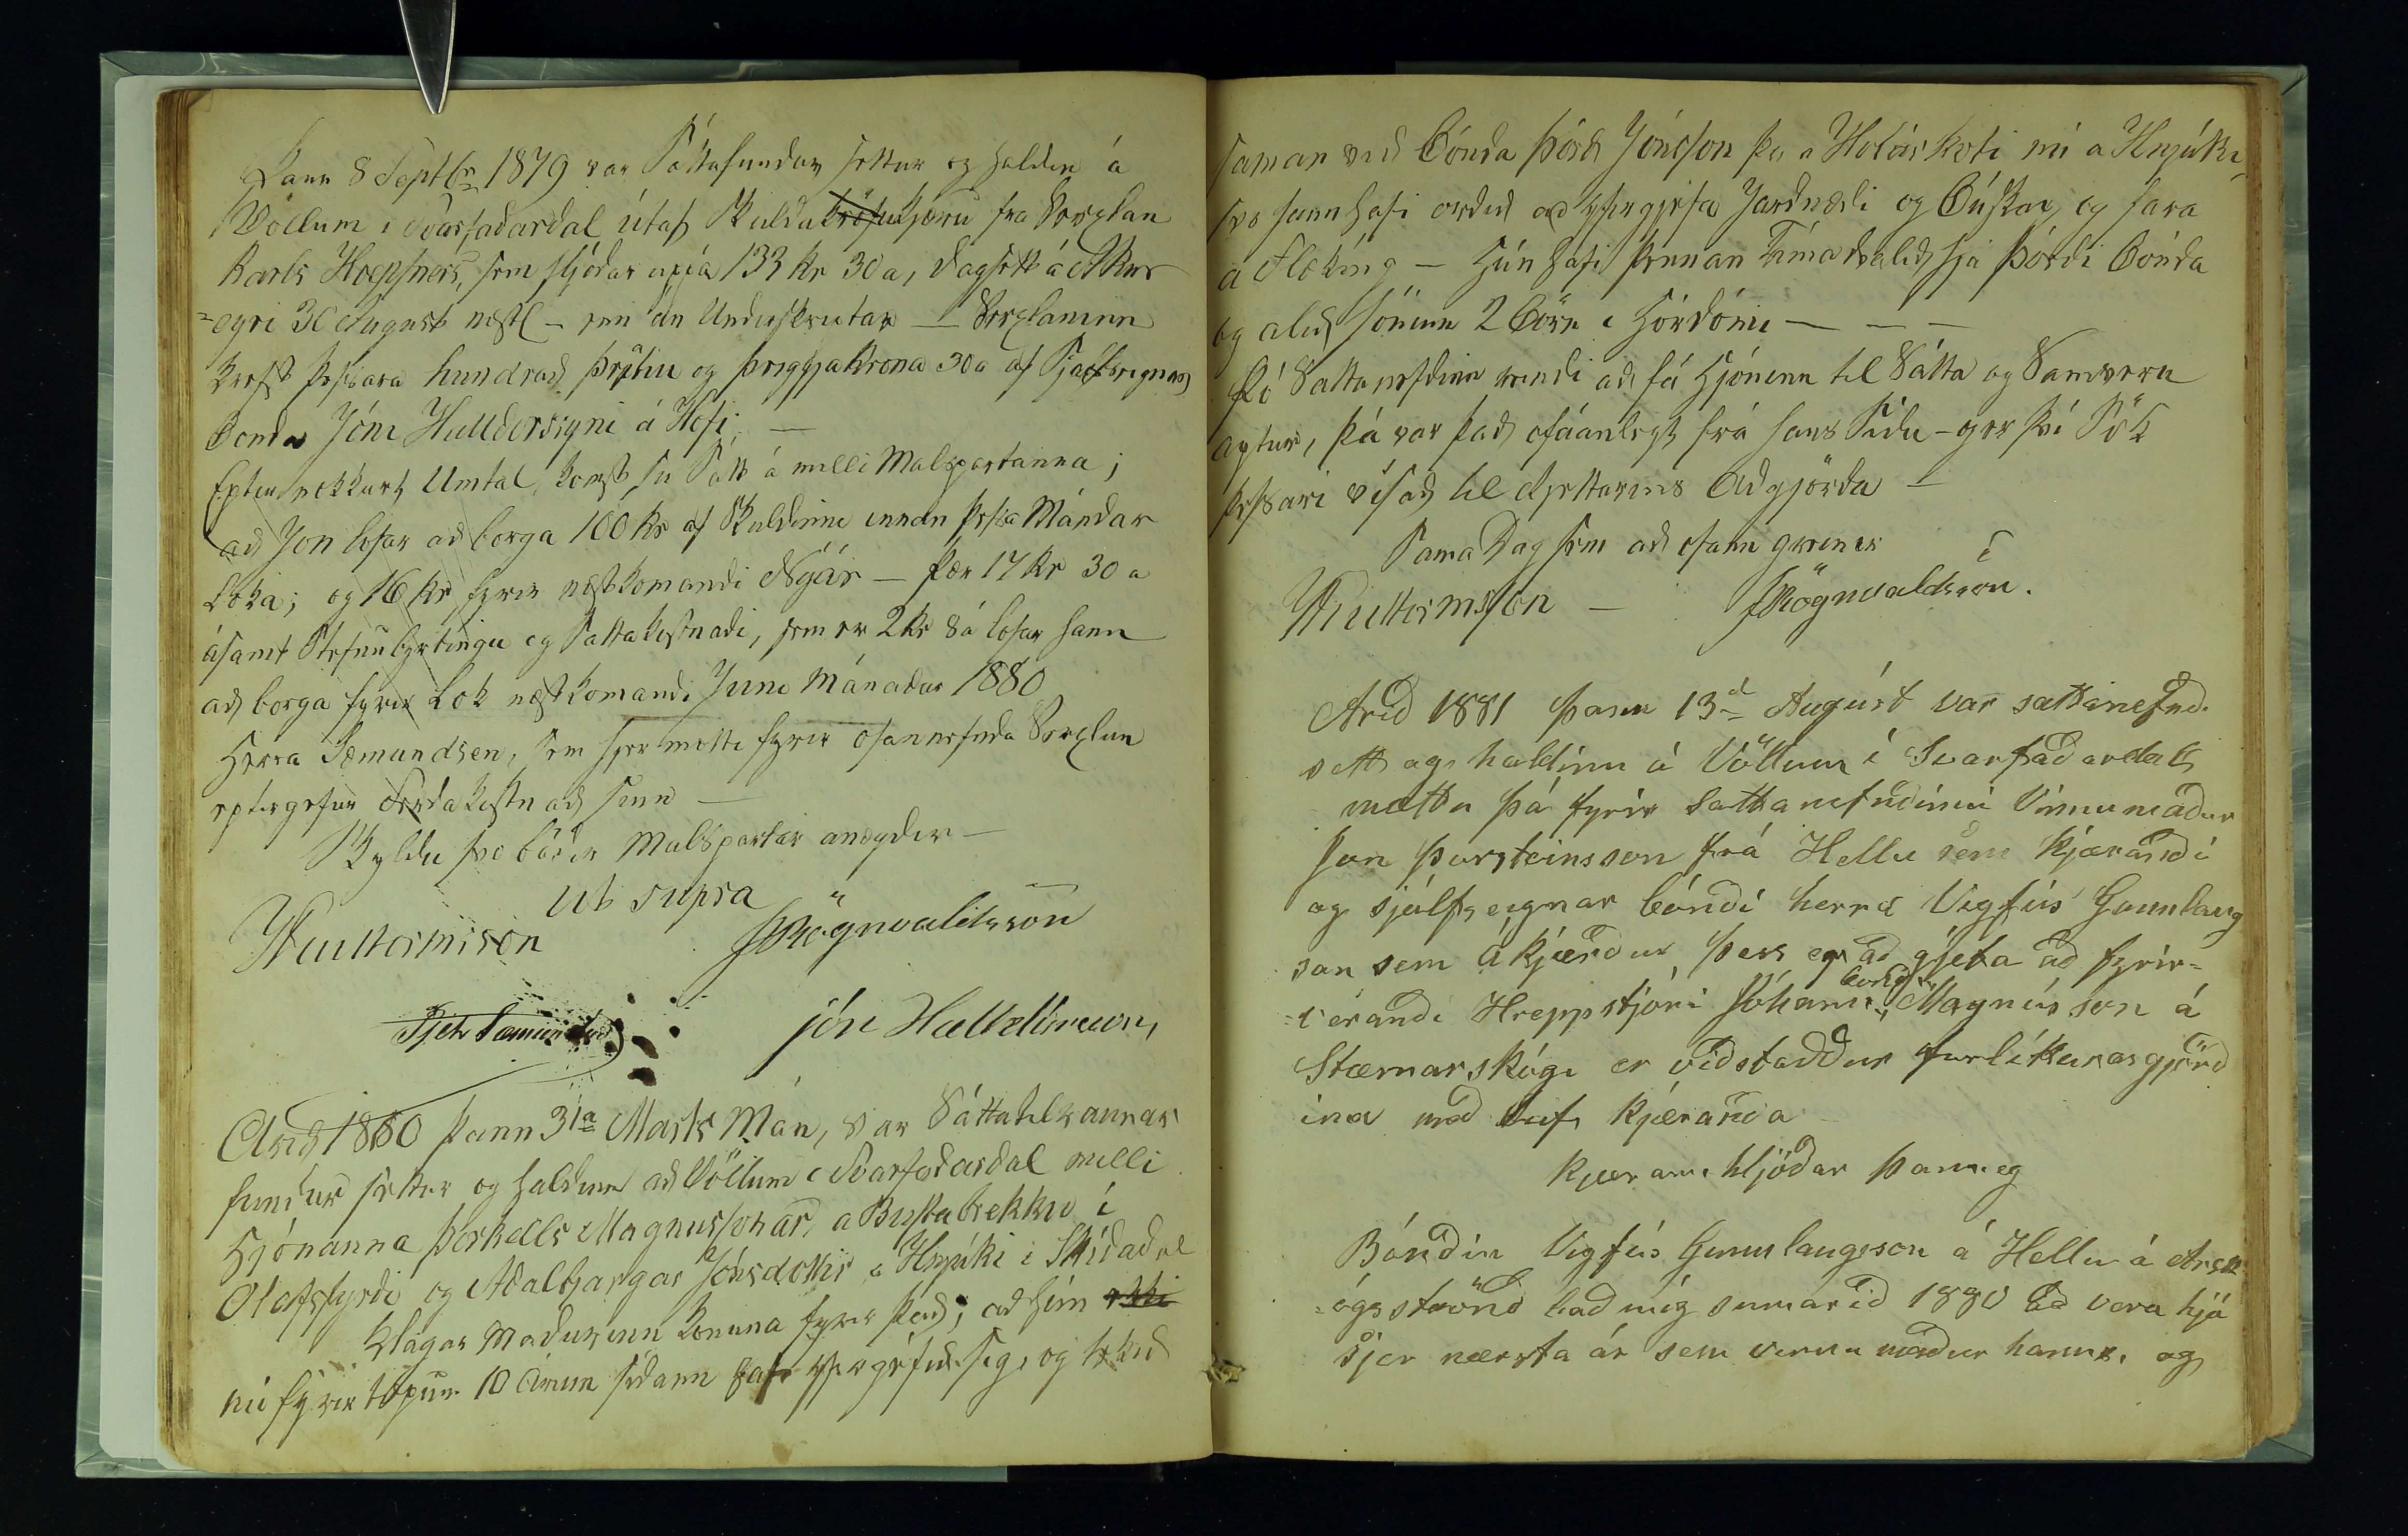 Þann 8 Septbr 1879 var Sáttafundur settur og haldin á
Völlum i Svarfaðardal útaf Skuldakröfukjæru fra Verzlan
Karls Hoepfners, sem hljóðar uppá 133 kr 30 a, dagsett á Akur
=eyri 30 August næstl - en án Undirskriptar — Verzlaninn
krefst þessara hundrað þrjátiu og þriggja krona 30 a af Sjálfseignar
bonda Jóni Halldorssyni á Hofi —
Eptir nokkurt Umtal, komst su Sátt á milli Malspartanna;
að Jon lofar að borga 100 kr af Skuldinni innan þessa Mánðar
Loka; og 16 kr fyrir næstkomandi Nýár — þær 17 kr 30 a
ásamt Stefnubirtingu og Sattakostnaði, sem er 2 kr 8 á lofar hann
að borga fyrir Lok næstkomandi Juni Mánaðar 1880
Herra Sæmundsen, sem hjer mætti fyrir ofannefnda Verzlun
eptirgefur Ferdakostnað sinn —
Skyldu svo báðir Malspartar anægdir —
Ut supra
HGuttormsson JRögnvaldsson
Pjetr Sæmundsen jón Halldórsson,
Arið 1880 þann 31a Marts Mán, var Sáttatilraunar
fundur settur og haldinn að Völlum i Svarfaðardal milli
Hjónanna Þorkells Magnussonar, a Burstabrekku í
Olafsfyrði og Aðalbjargar Jónsdottir a Hnjúki i Skíðadal
Klagar Maðurinn Konuna fyrir það; að hún ekki
nú fyrir tæpum 10 Arum siðann hafi yfirgefið sig, og tekið
saman við Bónda Þórð Jónsson þá a Holárkoti nú a Hnjúki,
svo hann hafi orðið að yfirgjefa Jardnæði og Búskap og fara
á Flæking — Hún hafi þennan Tíma dvalið hjá Þórði bónda
og alið honum 2 Börn i Hórdómi — — —
Þó Sattanefdinn reindi að fá Hjóninn til Sátta og Samveru
aptur, þá var það ofáanlegt frá hans Síðu - og er því Sök
þessari vísað til Rjettarins Aðgjörða —
Sama Dag sem að ofann greinir
HGuttormsson — JRögnvaldsson.
Arið 1881 þann 13da Augúst var sattanefnd
sett og haldinn á Völlum í Svarfaðardal,
mættu þá fyrir Sattanefndinni Vinnumaður
Jon Þorsteinsson frá Hellu sem kjærandi
og sjálfseignar bóndi herra Vigfús Gunnlaug
son sem ákjærður þess er að gjeta að fyrir=
=verandi Hreppstjóri Jóhann bondi Magnússon á
Stærrarskógi er viðstaddur forlikunargjörð
ina með leifi kjæranda
Kjæran hljóðar þanneg
Bóndin Vigfús Gunnlaugsson á Hellu á Arsk
=ógsströnd bað mig sumarið 1880 að vera hjá
sjer næsta ár sem vinnumaður hanns, og